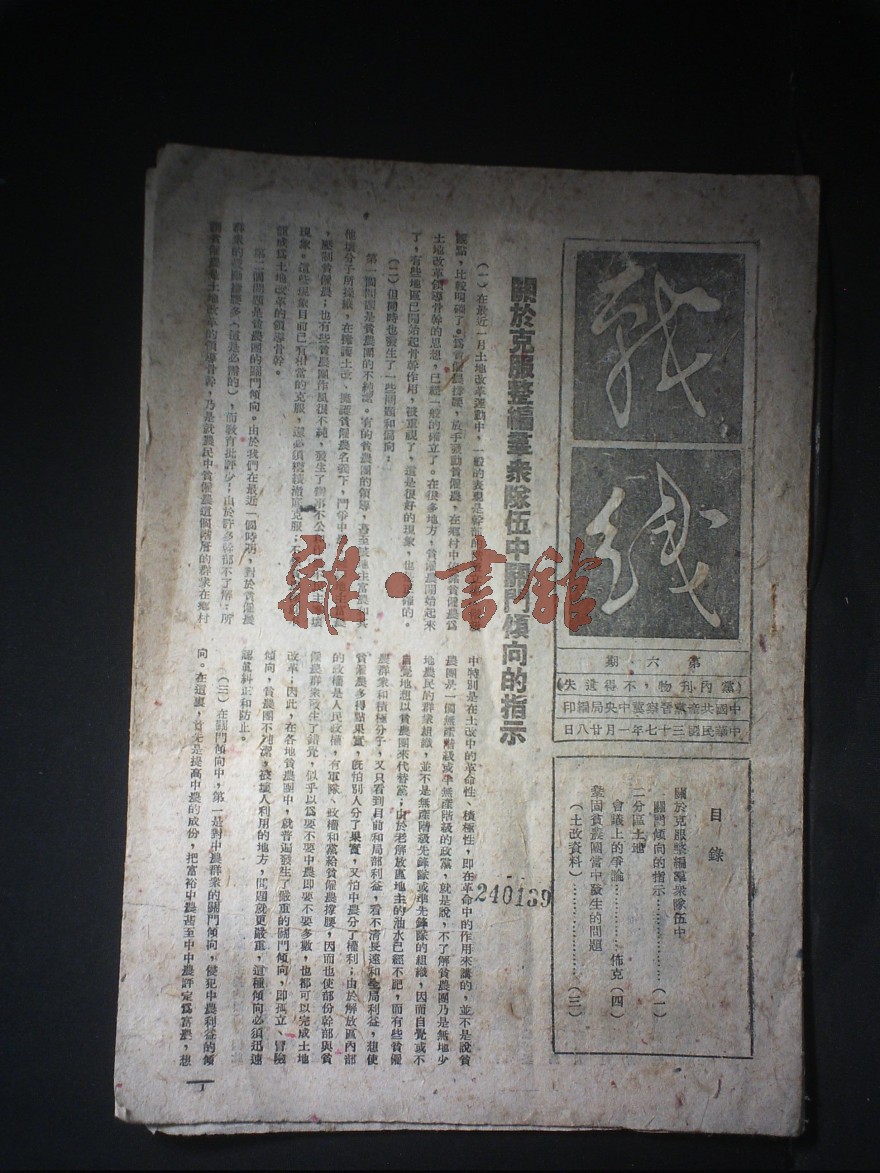 戰
线
第六期
（黨內刊物，不得遺失）
中國共產黨晉察冀中央局編印
中華民國三十七年一月廿八日
目錄
關於克服整編羣衆隊伍中
關門傾向的指示………………（一）
二分區土地
會議上的爭論………………佈克（四）
鞏固貧農團當中發生的問題
（土改資料）………………（三）
關於克服整編羣衆隊伍中關門傾向的指示
（一）在最近一月土地改革運動中，一般的表現是幹部的
觀點，比較明確了。爲貧僱農撐腰，放手發動貧僱農，在鄉村中
土地改革領導骨幹的思想，已經一般的確立了。在很多地方，貧僱農開始起來
了，有些地區已開始起骨幹作用，被重視了，這是很好的現象，也
（二）但同時也發生了一些問題和偏向：
第一個問題是貧農團的不純潔。有的貧農團的領導，甚至被地主富農和其
他壞分子所操縱，在擁護土改、擁護貧僱農名義下，鬥爭中
，壓制貧僱農；也有些貧農團作風很不純，發生了辦事不公
現象。這些現象目前已有相當的克服，還必須繼續澈底克服，不
能成爲土地改革的領導骨幹。
第二個問題是貧農團的關門傾向。由於我們在最近一個時期，對於貧僱農
群衆的支持撐腰多（這是必需的），而教育批評少；由於許多幹部不了解：所
謂貧僱農是土地改革的領導骨幹，乃是就農民中貧僱農這個階層的群衆在鄉村
中特別是在土改中的革命性、積極性，即在革命中的作用來講的，並不是說貧
農團是一個無產階級或半無產階級的政黨，就是說，不了解貧農團乃是無地少
地農民的群衆組織，並不是無產階級先鋒隊或準先鋒隊的組織，因而自覺或不
自覺地想以貧農團來代替黨；由於老解放區地主的油水已經不肥，而有些貧僱
農群衆和積極分子，又只看到目前和局部利益，看不清長遠和全局利益，想使
貧僱農多得點果實，旣怕別人分了果實，又怕中農分了權利；由於解放區內部
的政權是人民政權，有軍隊、政權和黨給貧僱農撐腰，因而也使部份幹部與貧
僱農群衆發生了錯覺，似乎以爲要不要中農即要不要多數，也都可以完成土地
改革；因此，在各地貧農團中，就普遍發生了嚴重的關門傾向，即孤立、冒險
傾向，貧農團不純潔，被壞人利用的地方，問題就更嚴重，這種傾向必須迅速
認眞糾正和防止。
（三）在關門傾向中，第一是對中農群衆的關門傾向，侵犯中農利益的傾
向。在這裏，首先是提高中農的成份，把富裕中農甚至中中農評定爲富農，想
240139
雜·書館
1